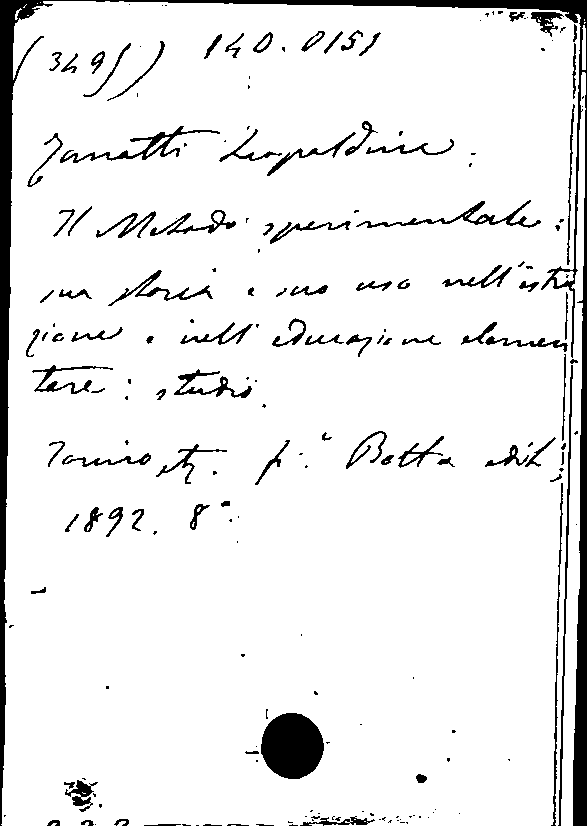 (3495) 140.0151
Zanatti Leopoldina.
Il Metodo sperimentale:
sua storia e suo uso nell'istru
zione e nell'educazione elemen
tare: studio.
Torino, tip. Botta edit.,
1892. 8°.